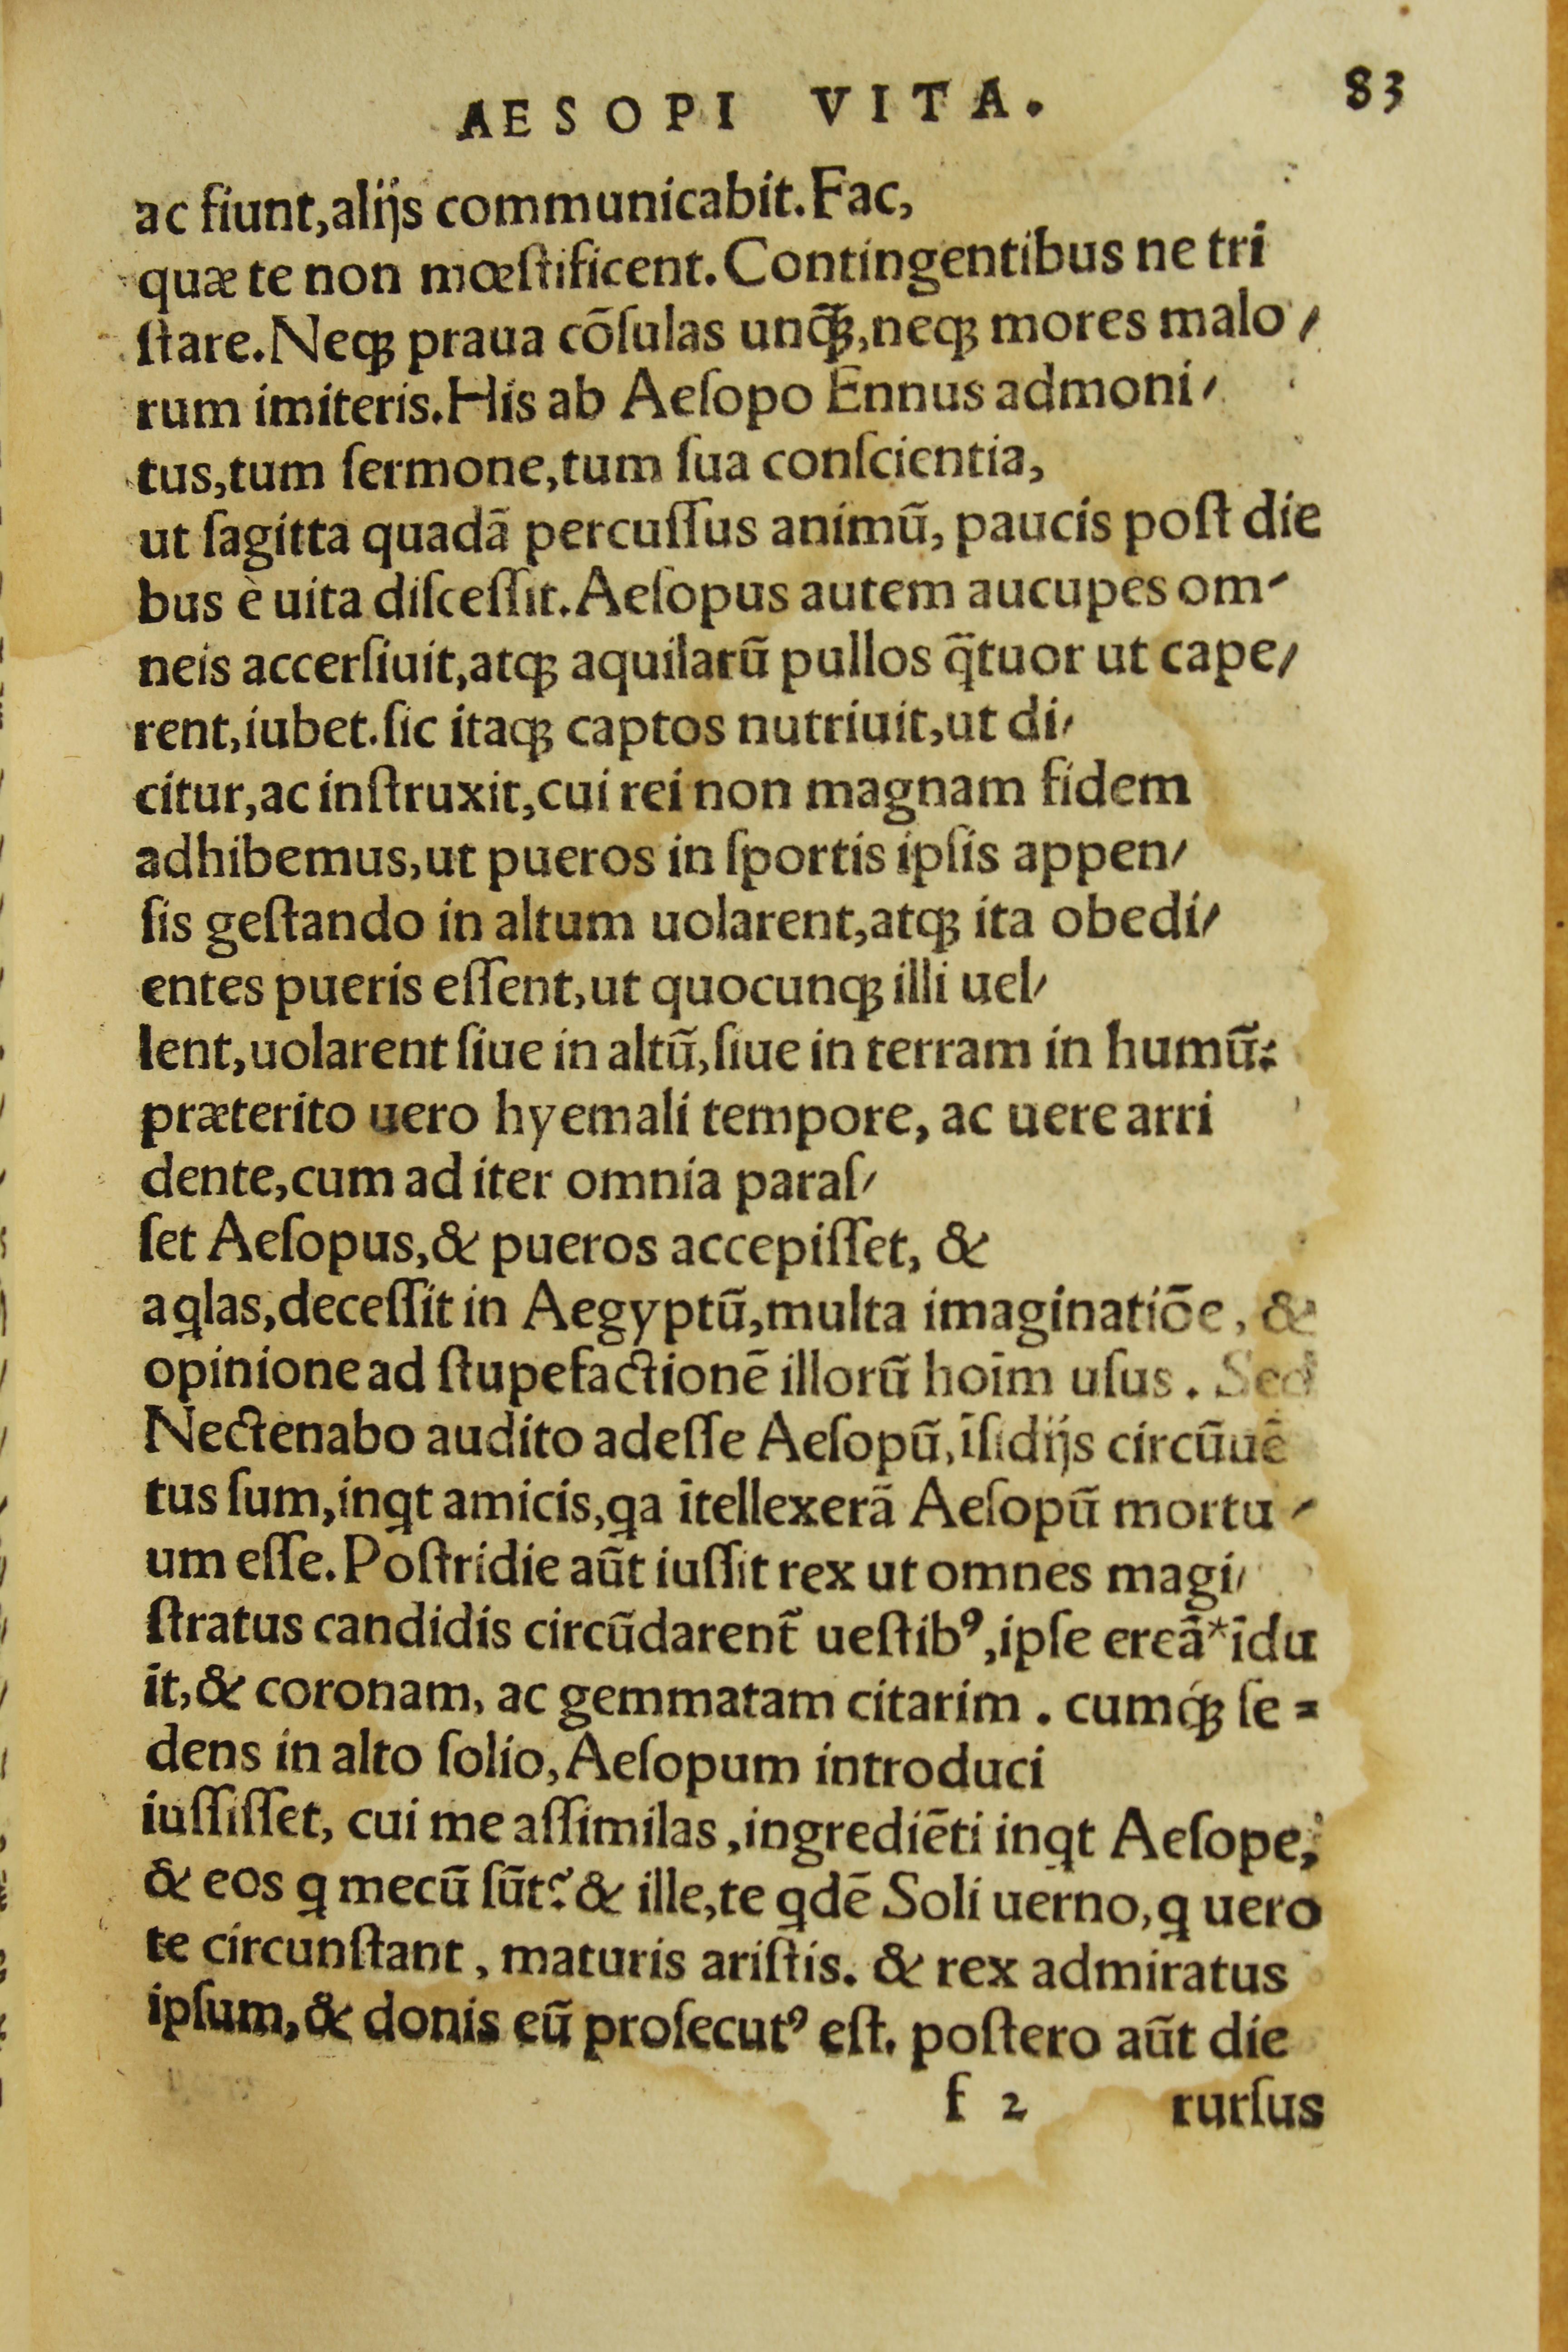 AESOPI VITA. 83
ac fiunt,alijs communicabit.Fac,
quæ te non mœſtificent. Contingentibus ne tri
ſtare.Neqꝫ praua cōſulas unq̃ꝫ,neqꝫ mores malo/
rum imiteris.His ab Aeſopo Ennus admoni/
tus,tum ſermone,tum ſua conſcientia,
ut ſagitta quadã percuſſus animũ, paucis poſt die
bus è uita diſceſſit.Aeſopus autem aucupes om/
neis accerſiuit,atqꝫ aquilarũ pullos q̃tuor ut cape/
rent,iubet.ſic itaqꝫ captos nutriuit,ut di/
citur,ac inſtruxit,cui rei non magnam fidem
adhibemus,ut pueros in ſportis ipſis appen/
ſis geſtando in altum uolarent,atqꝫ ita obedi/
entes pueris eſſent,ut quocunqꝫ illi uel/
lent,uolarent ſiue in altũ,ſiue in terram in humũ:
præterito uero hyemali tempore, ac uere arri
dente,cum ad iter omnia paraſ/
ſet Aeſopus,& pueros accepiſſet, &
aꝗlas,deceſſit in Aegyptũ,multa imaginatiōe, &
opinione ad ſtupefactionē illorũ hoīm uſus. Sed
Nectenabo audito adeſſe Aeſopũ,īſidijs circũuē
tus ſum,inꝗt amicis,ꝗa ītellexerã Aeſopũ mortu/
um eſſe.Poſtridie aũt iuſſit rex ut omnes magi/
ſtratus candidis circũdarent̃ ueſtibꝰ,ipſe ereã*īdu
it,& coronam, ac gemmatam citarim. cumq́ꝫ ſe=
dens in alto ſolio,Aeſopum introduci
iuſſiſſet, cui me aſſimilas,ingrediēti inꝗt Aeſope,
& eos ꝗ mecũ ſũt? & ille,te ꝗdē Soli uerno,ꝗ uero
te circunſtant, maturis ariſtis. & rex admiratus
ipſum,& donis eũ proſecutꝰ eſt. poſtero aũt die
f 2 rurſus